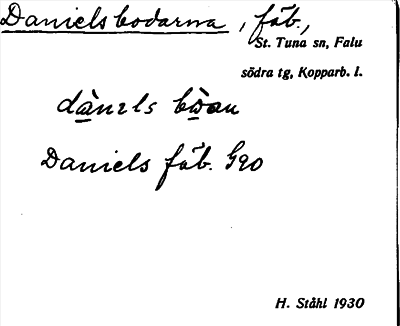 Danielsbodarna, fäb.,
St. Tuna sn, Falu
södra tg, Kopparb. l.
dànɛls bo̱au
Daniels fäb. G20
H. Ståhl 1930